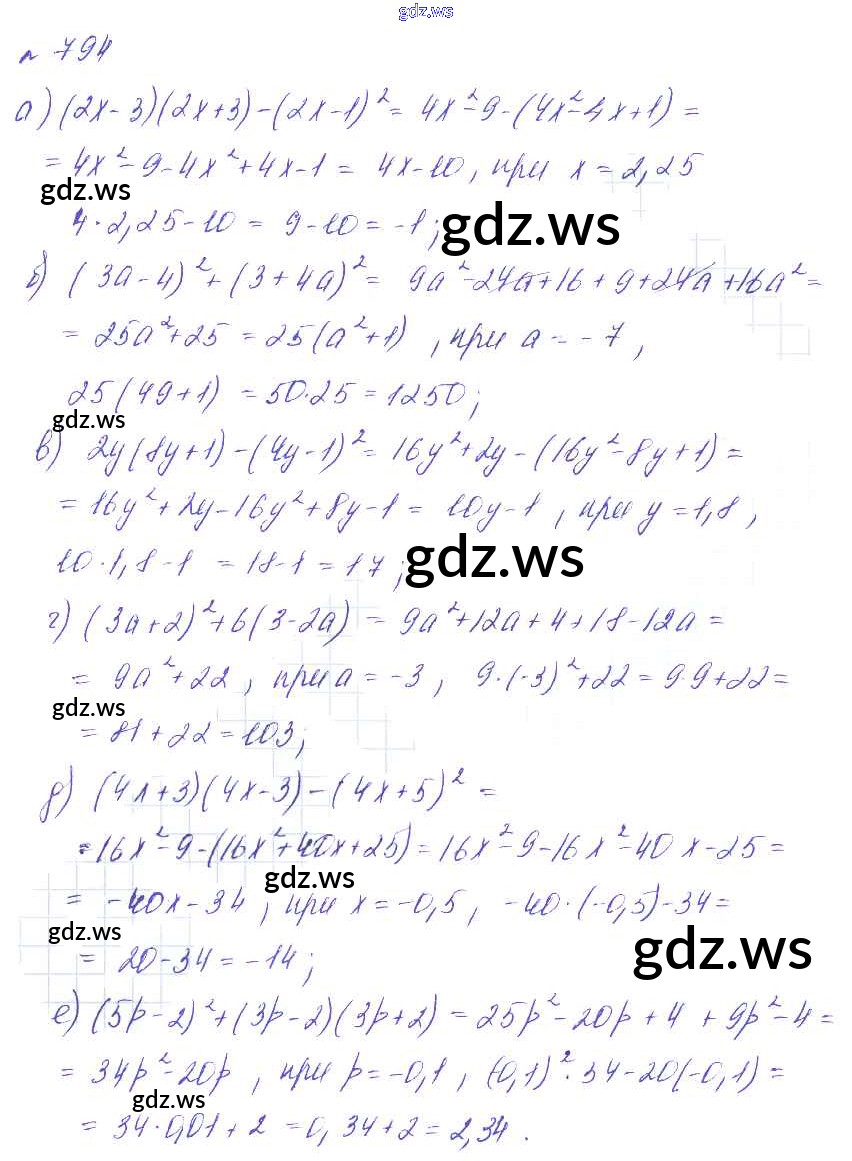 gdz.ws
№ 794
а) (2x-3)(2x+3)-(2x-1)²= 4x²-9-(4x²-4x+1) =
= 4x²-9-4x²+4x-1 = 4x-10, при x=2,25
gdz.ws
4·2,25-10 = 9-10=-1;
gdz.ws
б) (3a-4)²+(3+4a)²= 9a²-24a+16+9+24a+16a²=
= 25a²+25 = 25(a²+1) , при a=-7,
25(49+1) = 50·25=1250;
gdz.ws
в) 2y(8y+1)-(4y-1)²= 16y²+2y-(16y²-8y+1)=
= 16y²+2y-16y²+8y-1= 10y-1 , при y=1,8,
10·1,8-1 = 18-1=17;
gdz.ws
г) (3a+2)²+6(3-2a) = 9a²+12a+4+18-12a=
= 9a²+22, при a=-3, 9·(-3)²+22=9·9+22=
gdz.ws
= 81+22=103;
д) (4x+3)(4x-3)-(4x+5)² =
=16x²-9-(16x²+40x+25)=16x²-9-16x²-40x-25=
gdz.ws
= -40x-34, при x=-0,5, -40·(-0,5)-34=
gdz.ws
= 20-34=-14;
gdz.ws
е) (5p-2)²+(3p-2)(3p+2) = 25p²-20p+4+9p²-4=
= 34p²-20p, при p=-0,1, (-0,1)²·34-20(-0,1)=
gdz.ws
= 34·0,01+2 =0,34+2=2,34.